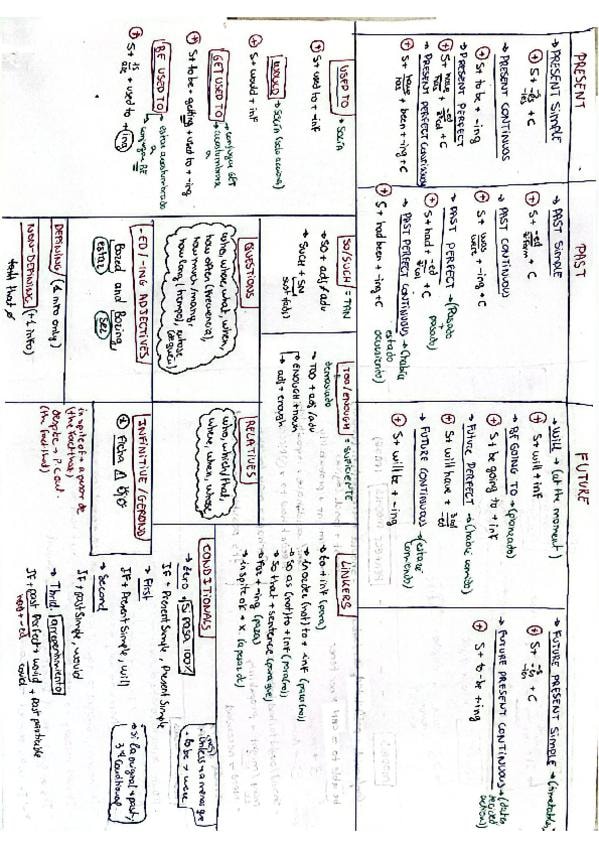 PRESENT
→ PRESENT SIMPLE
⊕ S + -s/-es + C
→ PRESENT CONTINUOUS
⊕ S + to be + -ing
→ PRESENT PERFECT
⊕ S + have/has + -ed/3rd col + C
→ PRESENT PERFECT CONTINUOUS
⊕ S + have/has + been + -ing + C
PAST
→ PAST SIMPLE
⊕ S + -ed + C
→ PAST CONTINUOUS
⊕ S + was/were + -ing + C
→ PAST PERFECT → (Pasado + pasado)
⊕ S + had + -ed + C
→ PAST PERFECT CONTINUOUS → (había estado
⊕ S + had been + -ing + C
FUTURE
→ WILL → (at the moment)
⊕ S + will + inf
→ BE GOING TO → (planeado)
⊕ S + be going to + inf
→ Future PERFECT → (habré comido)
⊕ S + will have + 3rd/-ed
→ FUTURE CONTINUOUS → (estaré comiendo)
⊕ S + will be + -ing
→ FUTURE PRESENT SIMPLE → (timetable)
⊕ S + -s/-es + C
→ FUTURE PRESENT CONTINUOUS →
⊕ S + to-be + ing
USED TO → Solía
⊕ S + used to + inf
WOULD → Solía (solo acciones)
⊕ S + would + inf
GET USED TO → conjugar GET
→ acostumbrarse a
⊕ S + to be + getting + used to + -ing
BE USED TO → estar acostumbrado a
→ conjugar BE
⊕ S + is/are + used to + -ing
SO/SUCH = TAN
→ SO + adj/adv
→ SUCH + SN
TOO/ENOUGH = suficiente
demasiado
→ TOO + adj/adv
→ ENOUGH + noun
→ adj + enough
LINKERS
→ to + inf (para)
→ in order (not) to + inf (para (no))
→ so as (not) to + inf (para (no))
→ so that + sentence (para que)
→ For + -ing (para)
→ in spite of + x (a pesar de)
QUESTIONS
who, where, what, when,
how often (frecuencia),
how much/many,
how long (tiempo), whose
(de quién)
RELATIVES
who, which/that,
where, when, whose
CONDITIONALS
→ Zero → Si pasa 100%
IF + Present Simple, Present Simple
→ First
IF + Present Simple, will
→ Second
IF + past Simple, would
→ Third → arrepentimiento
IF + past Perfect + would + past participle
could
→ Unless → a menos que
→ to be → were
-ED/-ING ADJECTIVES
Bored and Boring
estar ser
INFINITIVE/GERUND
Ficha
DEFINING (& info only)
NON-DEFINING (+1 info)
that ø
in spite of → a pesar de
(the fact that)
despite
(the fact that)